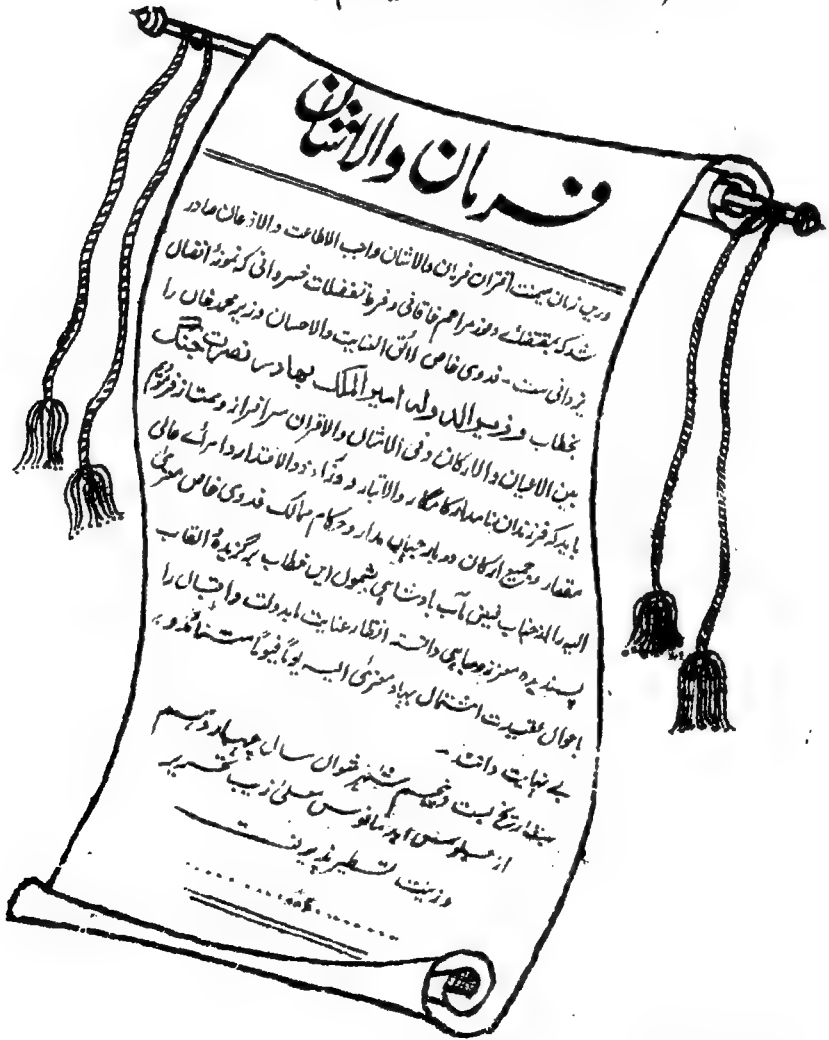 فرمان والاشان
درین زمان میمنت اقتران فرمان والاشان واجب الاطاعت والاذعان صادر
شد که بمقتضائے وفور مراحم خاقانی و فرط تفضلات خسروانی که نمونۂ افضال
یزدانی ست - فدوی خاص لائق العنایت والاحسان وزیر محمد خاں را
بخطاب وزیر الدولہ امیر الملک بهادر نصرت جنگ
بین الاعیان والارکان وفی الامثال والاقران سرافراز و ممتاز فرمودیم
باید که فرزندان نامدار کامگار والاتبار و وزراء ذوالاقتدار و امرائے عالی
مقدار و جمیع ارکان دربار جہاں مدار و حکام ممالک فدوی خاص معزیٰ
الیہ را از جناب فیض مآب بادشاہی بشمول ایں خطاب برگزیدۂ القاب
پسندیدہ معزز و مباہی دانستہ انظار عنایت مابدولت و اقبال را
باحوال عقیدت اشتمال بہادر معزیٰ الیہ یوماً فیوماً متزائد و بر
بے نہایت دانند -
بتاریخ بست و پنجم شہر شوال سال چہاردہم
از جلوس ابد مانوس معلیٰ زیب تحریر
و زینت تسطیر پذیرفت